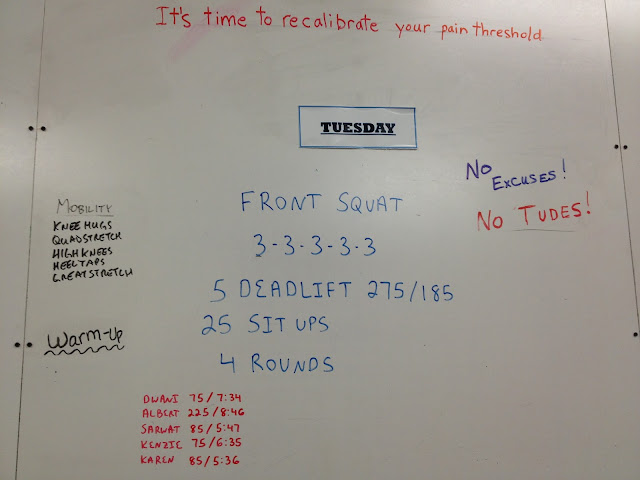 It's time to recalibrate your pain threshold
TUESDAY
No
EXCUSES!
No TUDES!
MOBILITY
KNEE HUGS
QUADSTRETCH
HIGH KNEES
HEEL TAPS
GREAT STRETCH
Warm-Up
FRONT SQUAT
3-3-3-3-3
5 DEADLIFT 275/185
25 SIT UPS
4 ROUNDS
DWANI 75/7:34
ALBERT 225/8:46
SARWAT 85/5:47
KENZIE 75/6:35
KAREN 85/5:36